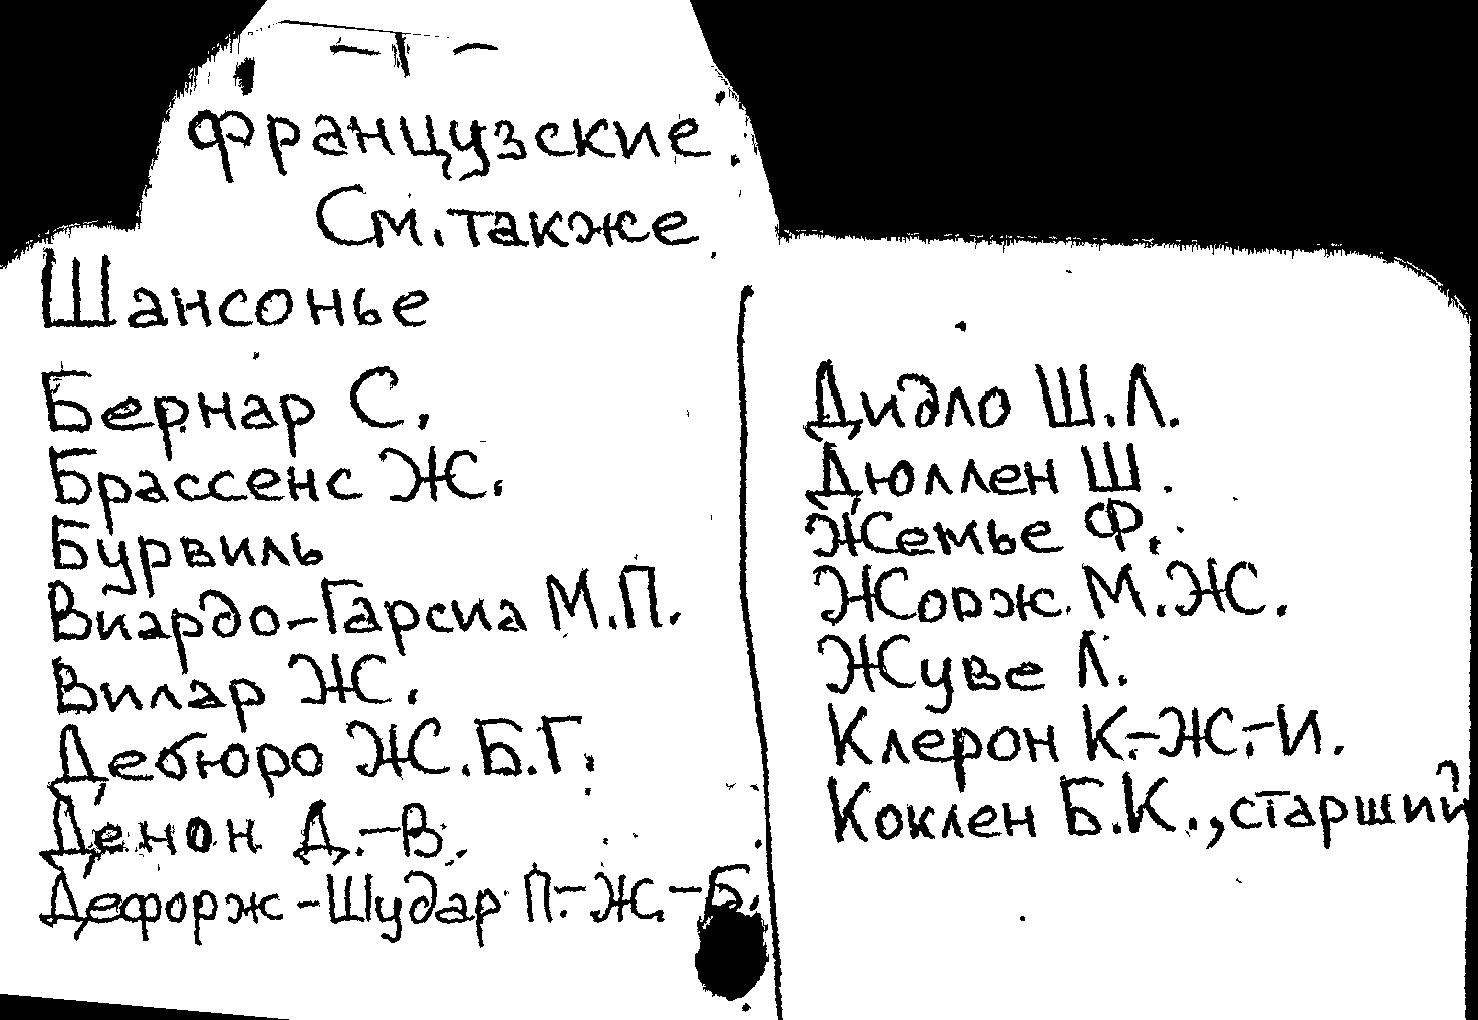 — I —
французские
См. также
Шансонье
Бернар С.
Брассенс Ж.
Бурвиль
Виардо-Гарсиа М.П.
Вилар Ж.
Дебюро Ж.Б.Г.
Денон Д.-В.
Дефорж-Шудар П.-Ж.-Б.
Дидло Ш.Л.
Дюллен Ш.
Жемье Ф.
Жорж М.Ж.
Жуве Л.
Клерон К.-Ж.-И.
Коклен Б.К., старший